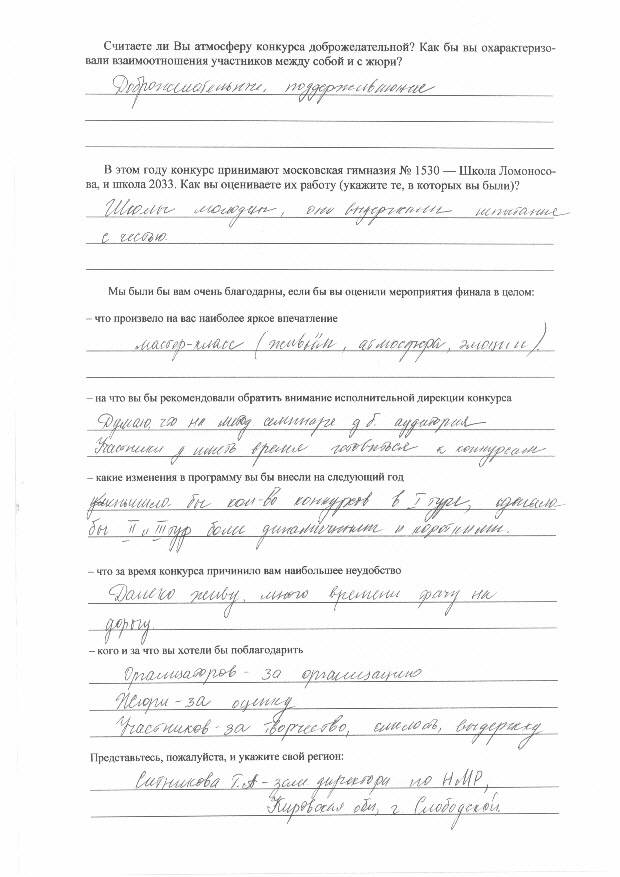 Считаете ли Вы атмосферу конкурса доброжелательной? Как бы вы охарактеризо-
вали взаимоотношения участников между собой и с жюри?
Доброжелательные, поддерживающие
В этом году конкурс принимают московская гимназия № 1530 — Школа Ломоносо-
ва, и школа 2033. Как вы оцениваете их работу (укажите те, в которых вы были)?
Школы молодцы, они выдержали испытание
с честью.
Мы были бы вам очень благодарны, если бы вы оценили мероприятия финала в целом:
– что произвело на вас наиболее яркое впечатление
мастер-класс ( , атмосфера, эмоции).
– на что вы бы рекомендовали обратить внимание исполнительной дирекции конкурса
Думаю, что на семинаре д б. аудитория
Участники д иметь время готовиться к конкурсам
– какие изменения в программу вы бы внесли на следующий год
уменьшила бы кол-во конкурсов в I туре, сделала
бы II и III тур более динамичными и короткими.
– что за время конкурса причинило вам наибольшее неудобство
Далеко живу, много времени трачу на
дорогу.
– кого и за что вы хотели бы поблагодарить
Организаторов - за организацию
Жюри - за оценку
Участников - за творчество, смелость, выдержку
Представьтесь, пожалуйста, и укажите свой регион:
Ситникова Т.А - зам директора по НМР,
Кировская обл, г Слободской.